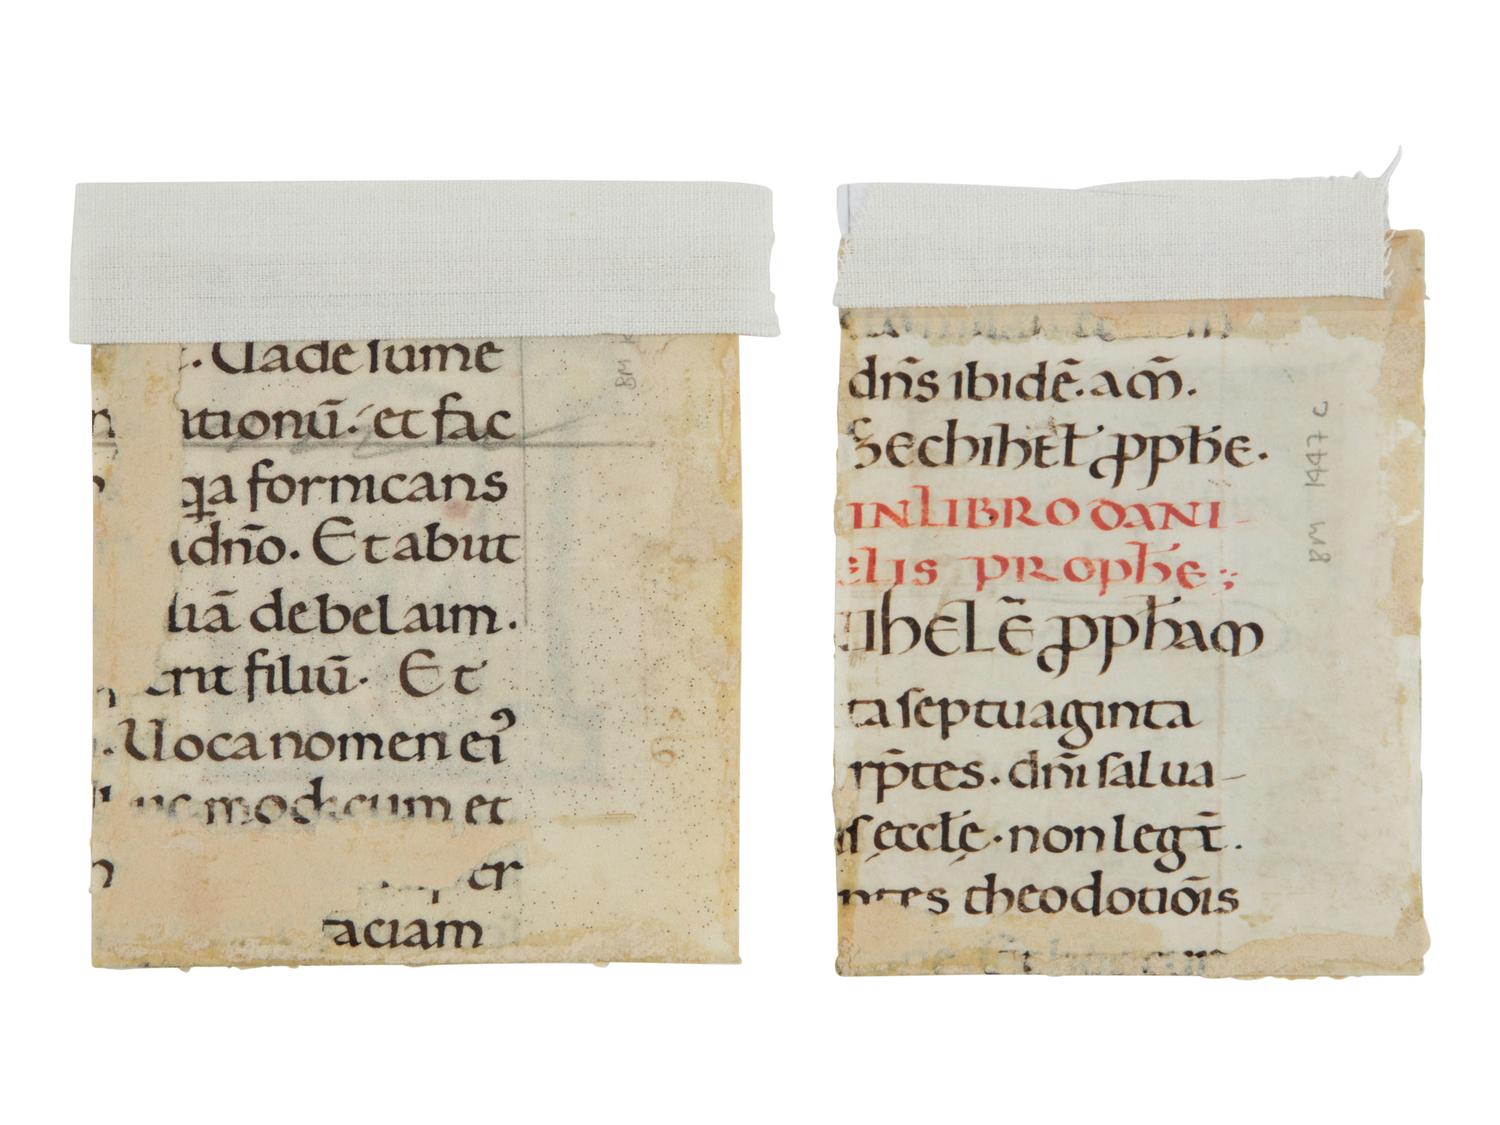 . Uade sume
ationū. et fac
q̣a fornicans
adn̄o. Et abiit
liā debelaim.
erit filiū. Et
. Uoca nomen ei᾿
modicum et
er
aciam
BM
dn̄s ibidē. am̄.
hiezechihel ꝓphe.
IN LIBRO DANI-
ELIS PROPhE;
IhELĒ ꝓpham
ta septuaginta
rp̄tes. dn̄i salua-
s eccłe. non legt̄.
ntes theodotiōis
BM 1447 C